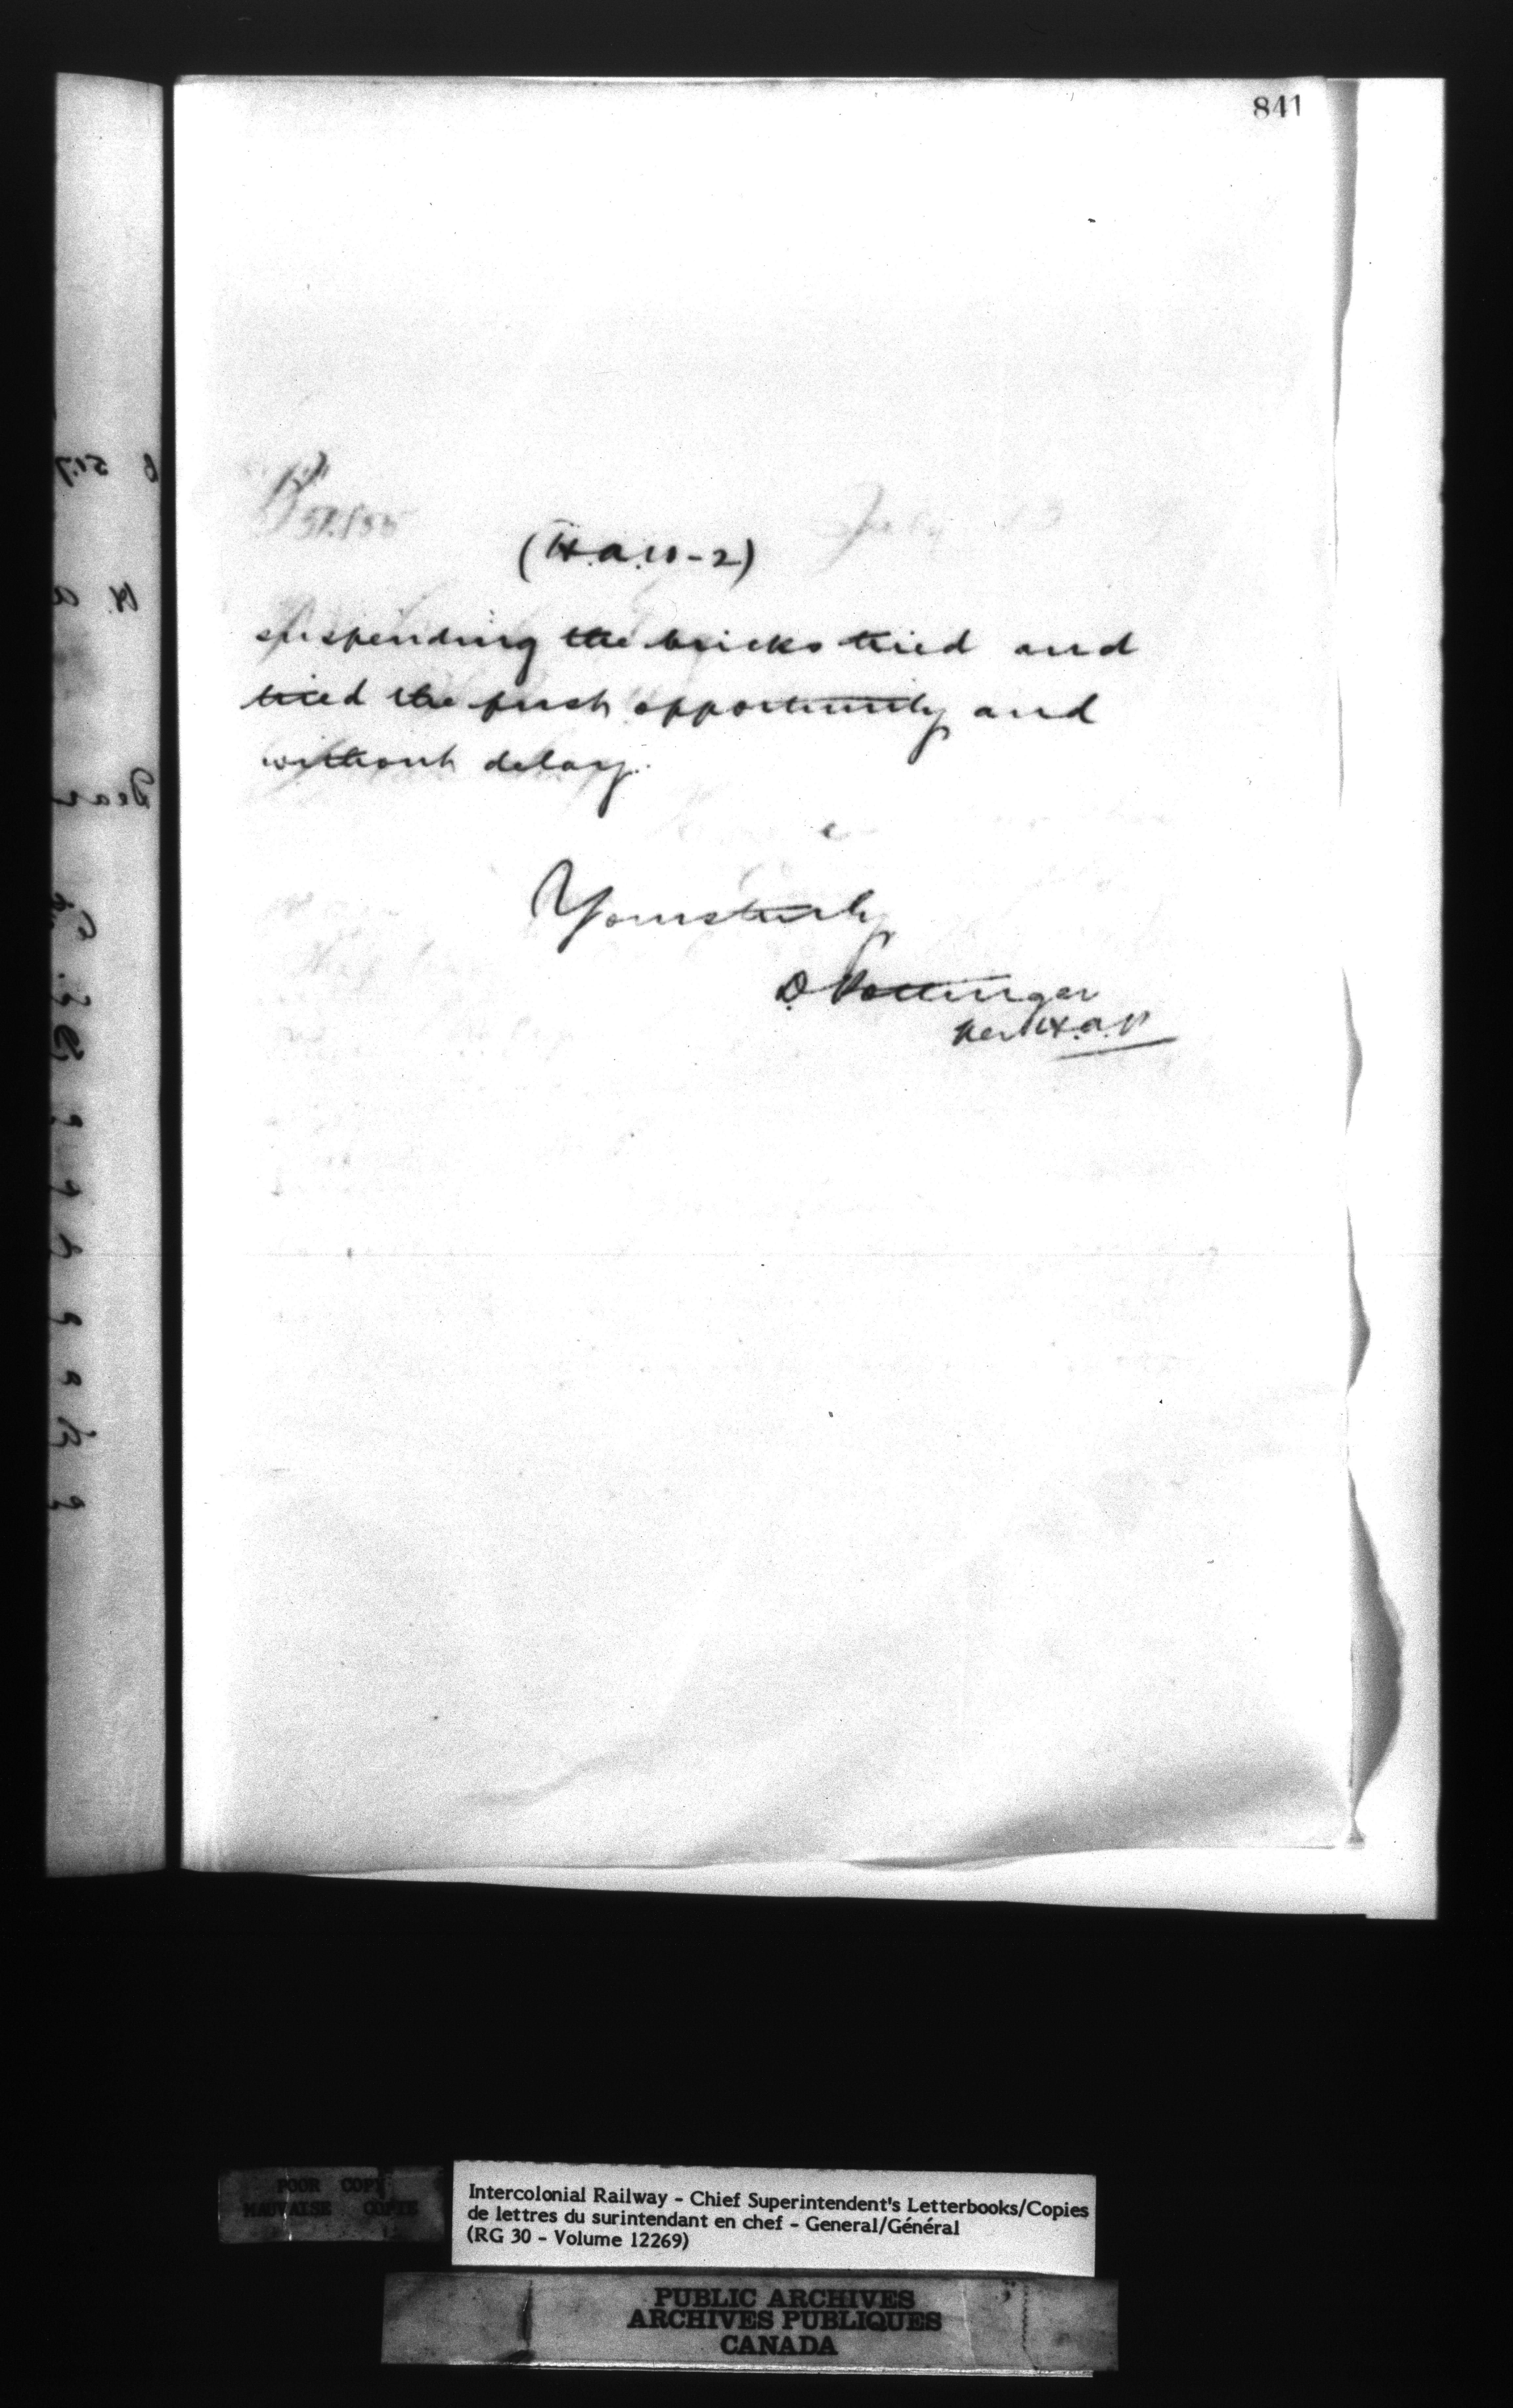 841
(H.A.W-2)
suspending the bricks tried and
tried the first opportunity and
without delay.
Yours truly
D Pottinger
Per H.A.P
POOR COPY
MAUVAISE COPIE
Intercolonial Railway - Chief Superintendent's Letterbooks/Copies
de lettres du surintendant en chef - General/Général
(RG 30 - Volume 12269)
PUBLIC ARCHIVES
ARCHIVES PUBLIQUES
CANADA